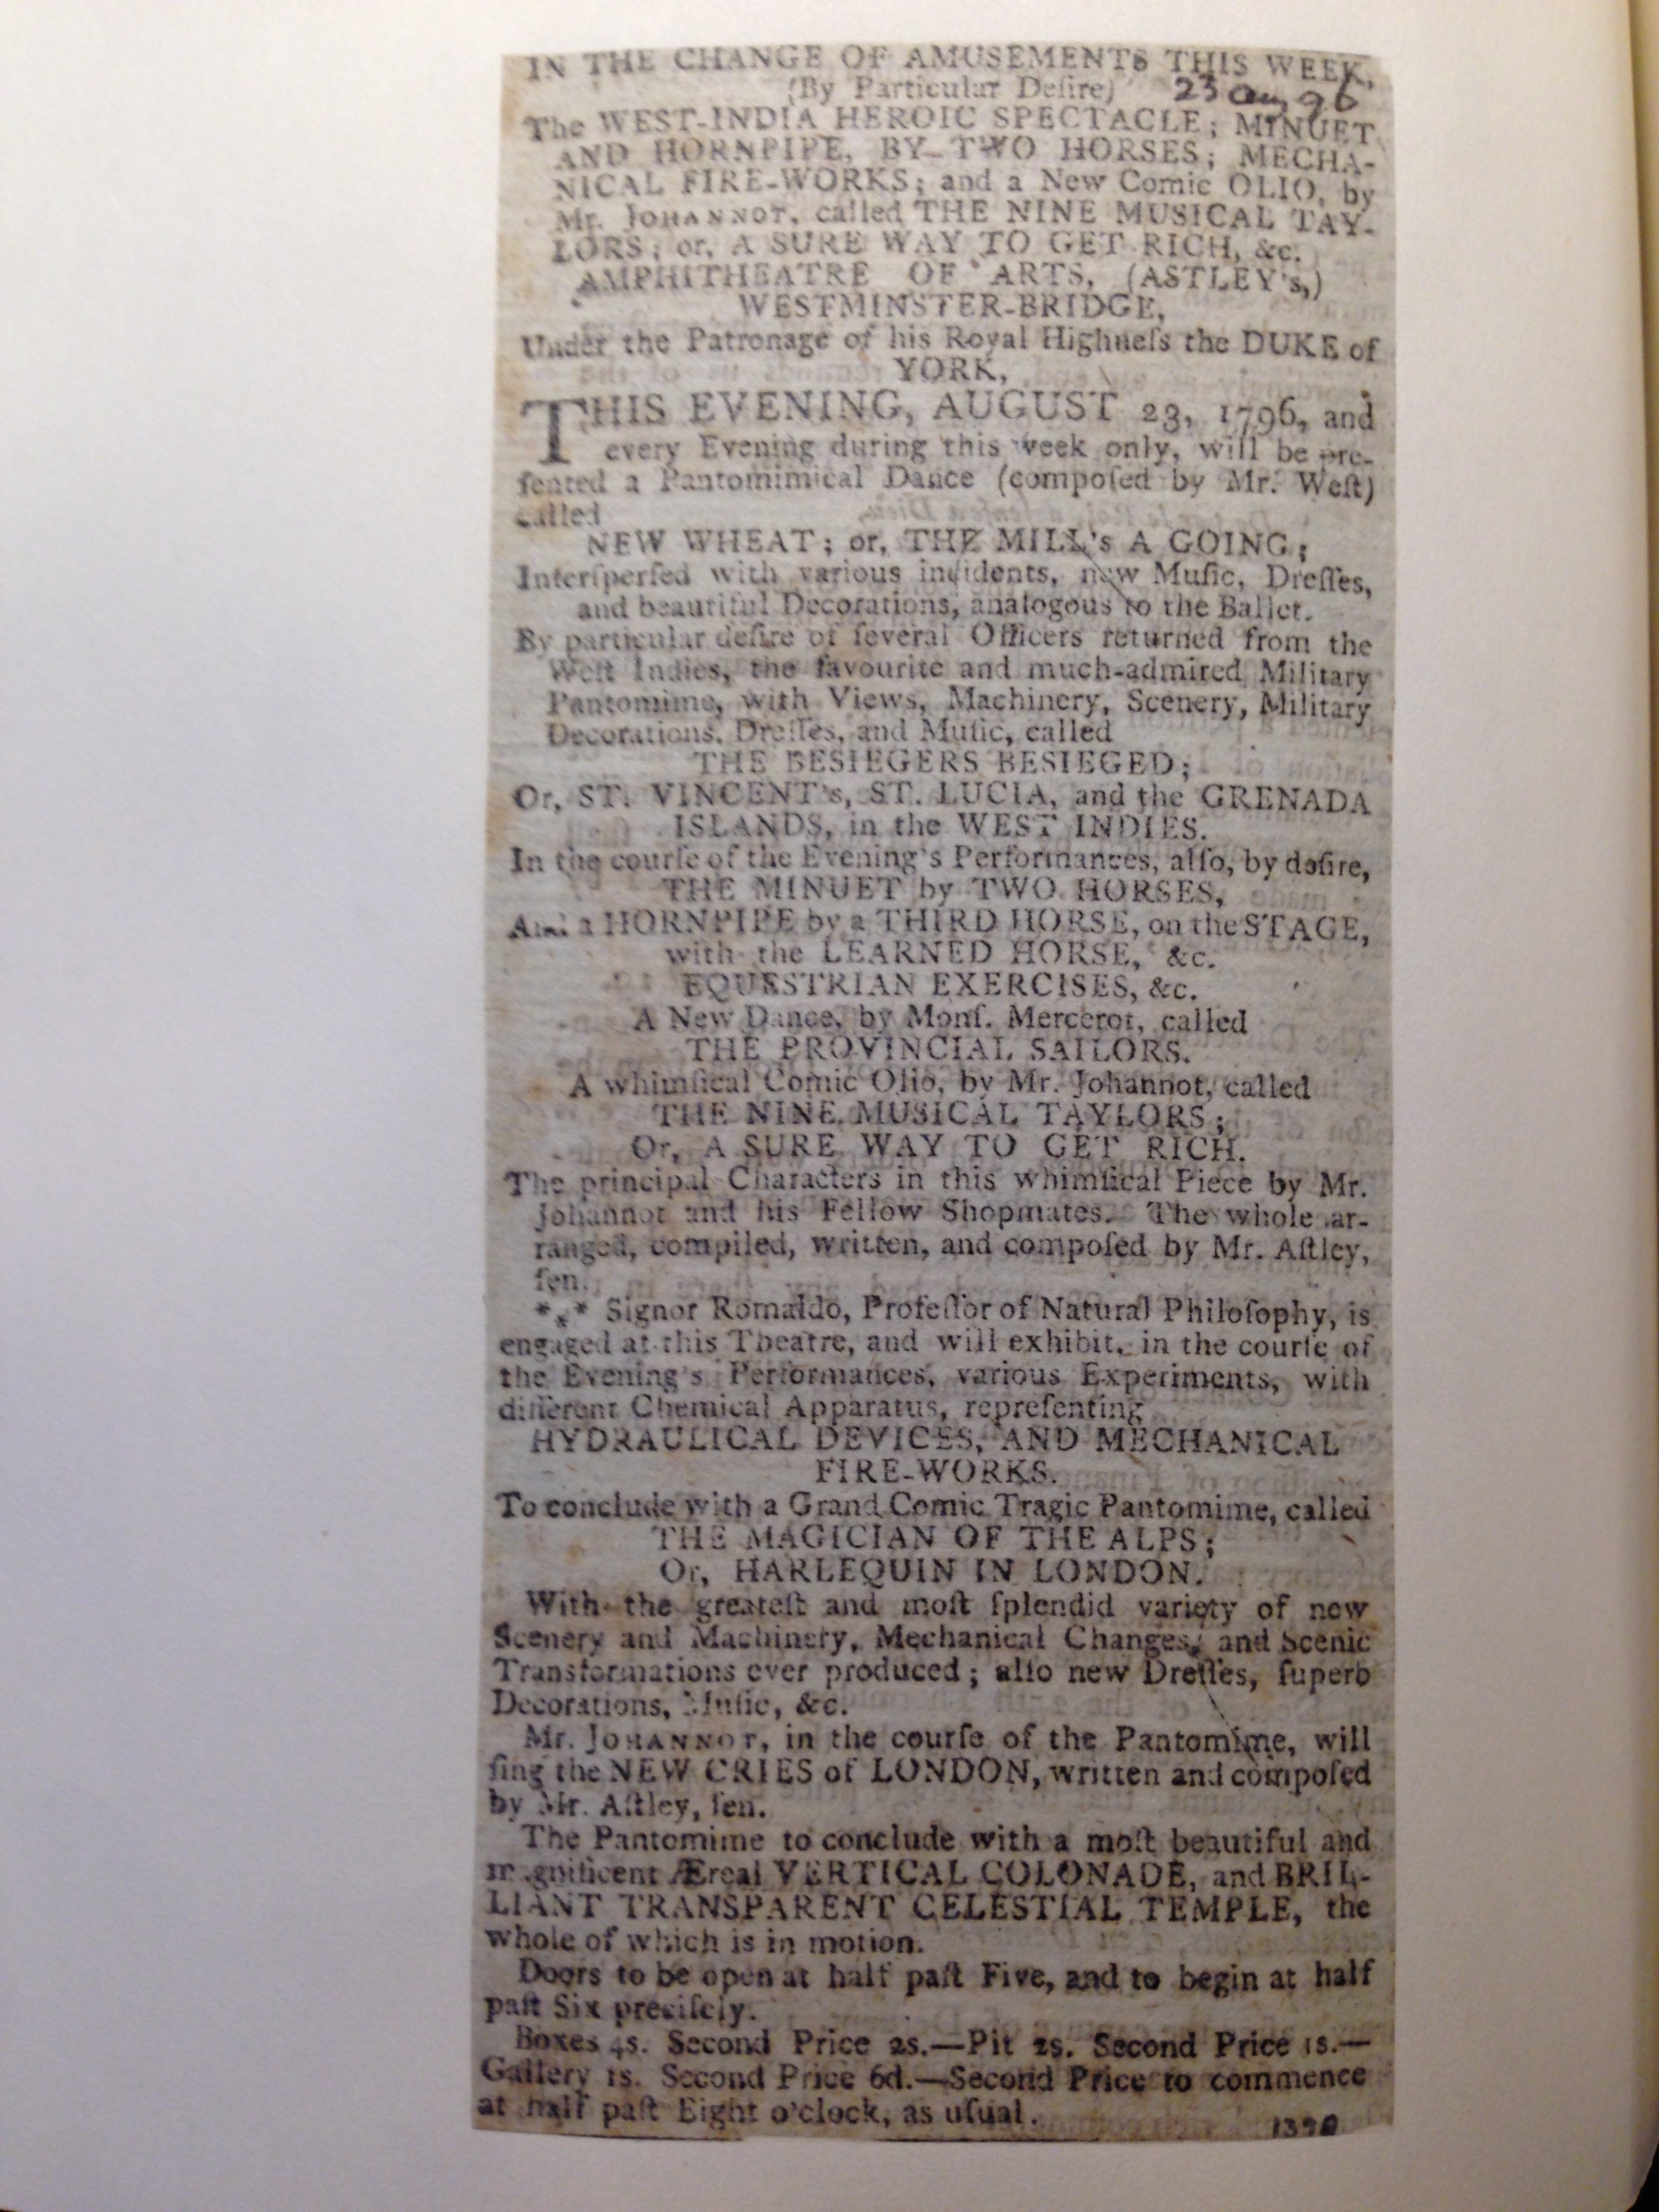 IN THE CHANGE OF AMUSEMENTS THIS WEEK,
(By Particular Deſire) 23 Aug 96
The WEST-INDIA HEROIC SPECTACLE; MINUET
AND HORNPIPE, BY TWO HORSES; MECHA-
NICAL FIRE-WORKS; and a New Comic OLIO, by
Mr. JOHANNOT, called THE NINE MUSICAL TAY-
LORS; or, A SURE WAY TO GET RICH, &c.
AMPHITHEATRE OF ARTS, (ASTLEY's,)
WESTMINSTER-BRIDGE,
Under the Patronage of his Royal Highneſs the DUKE of
YORK,
THIS EVENING, AUGUST 23, 1796, and
every Evening during this week only, will be pre-
ſented a Pantomimical Dance (compoſed by Mr. Weſt)
called
NEW WHEAT; or, THE MILL's A GOING;
Interſperſed with various incidents, new Muſic, Dreſſes,
and beautiful Decorations, analogous to the Ballet.
By particular deſire of ſeveral Officers returned from the
Weſt Indies, the favourite and much-admired Military
Pantomime, with Views, Machinery, Scenery, Military
Decorations, Dreſſes, and Muſic, called
THE BESIEGERS BESIEGED;
Or, ST. VINCENT's, ST. LUCIA, and the GRENADA
ISLANDS, in the WEST INDIES.
In the courſe of the Evening's Performances, alſo, by deſire,
THE MINUET by TWO HORSES,
And a HORNPIPE by a THIRD HORSE, on the STAGE,
with the LEARNED HORSE, &c.
EQUESTRIAN EXERCISES, &c.
A New Dance, by Monſ. Mercerot, called
THE PROVINCIAL SAILORS.
A whimſical Comic Olio, by Mr. Johannot, called
THE NINE MUSICAL TAYLORS;
Or, A SURE WAY TO GET RICH.
The principal Characters in this whimſical Piece by Mr.
Johannot and his Fellow Shopmates. The whole ar-
ranged, compiled, written, and compoſed by Mr. Aſtley,
ſen.
*** Signor Romaldo, Profeſſor of Natural Philoſophy, is
engaged at this Theatre, and will exhibit, in the courſe of
the Evening's Performances, various Experiments, with
different Chemical Apparatus, repreſenting
HYDRAULICAL DEVICES, AND MECHANICAL
FIRE-WORKS.
To conclude with a Grand Comic Tragic Pantomime, called
THE MAGICIAN OF THE ALPS;
Or, HARLEQUIN IN LONDON.
With the greateſt and moſt ſplendid variety of new
Scenery and Machinery, Mechanical Changes, and Scenic
Transformations ever produced; alſo new Dreſſes, ſuperb
Decorations, Muſic, &c.
Mr. JOHANNOT, in the courſe of the Pantomime, will
ſing the NEW CRIES of LONDON, written and compoſed
by Mr. Aſtley, ſen.
The Pantomime to conclude with a moſt beautiful and
magnificent Æreal VERTICAL COLONADE, and BRIL-
LIANT TRANSPARENT CELESTIAL TEMPLE, the
whole of which is in motion.
Doors to be open at half paſt Five, and to begin at half
paſt Six preciſely.
Boxes 4s. Second Price 2s.—Pit 2s. Second Price 1s.—
Gallery 1s. Second Price 6d.—Second Price to commence
at half paſt Eight o'clock, as uſual.